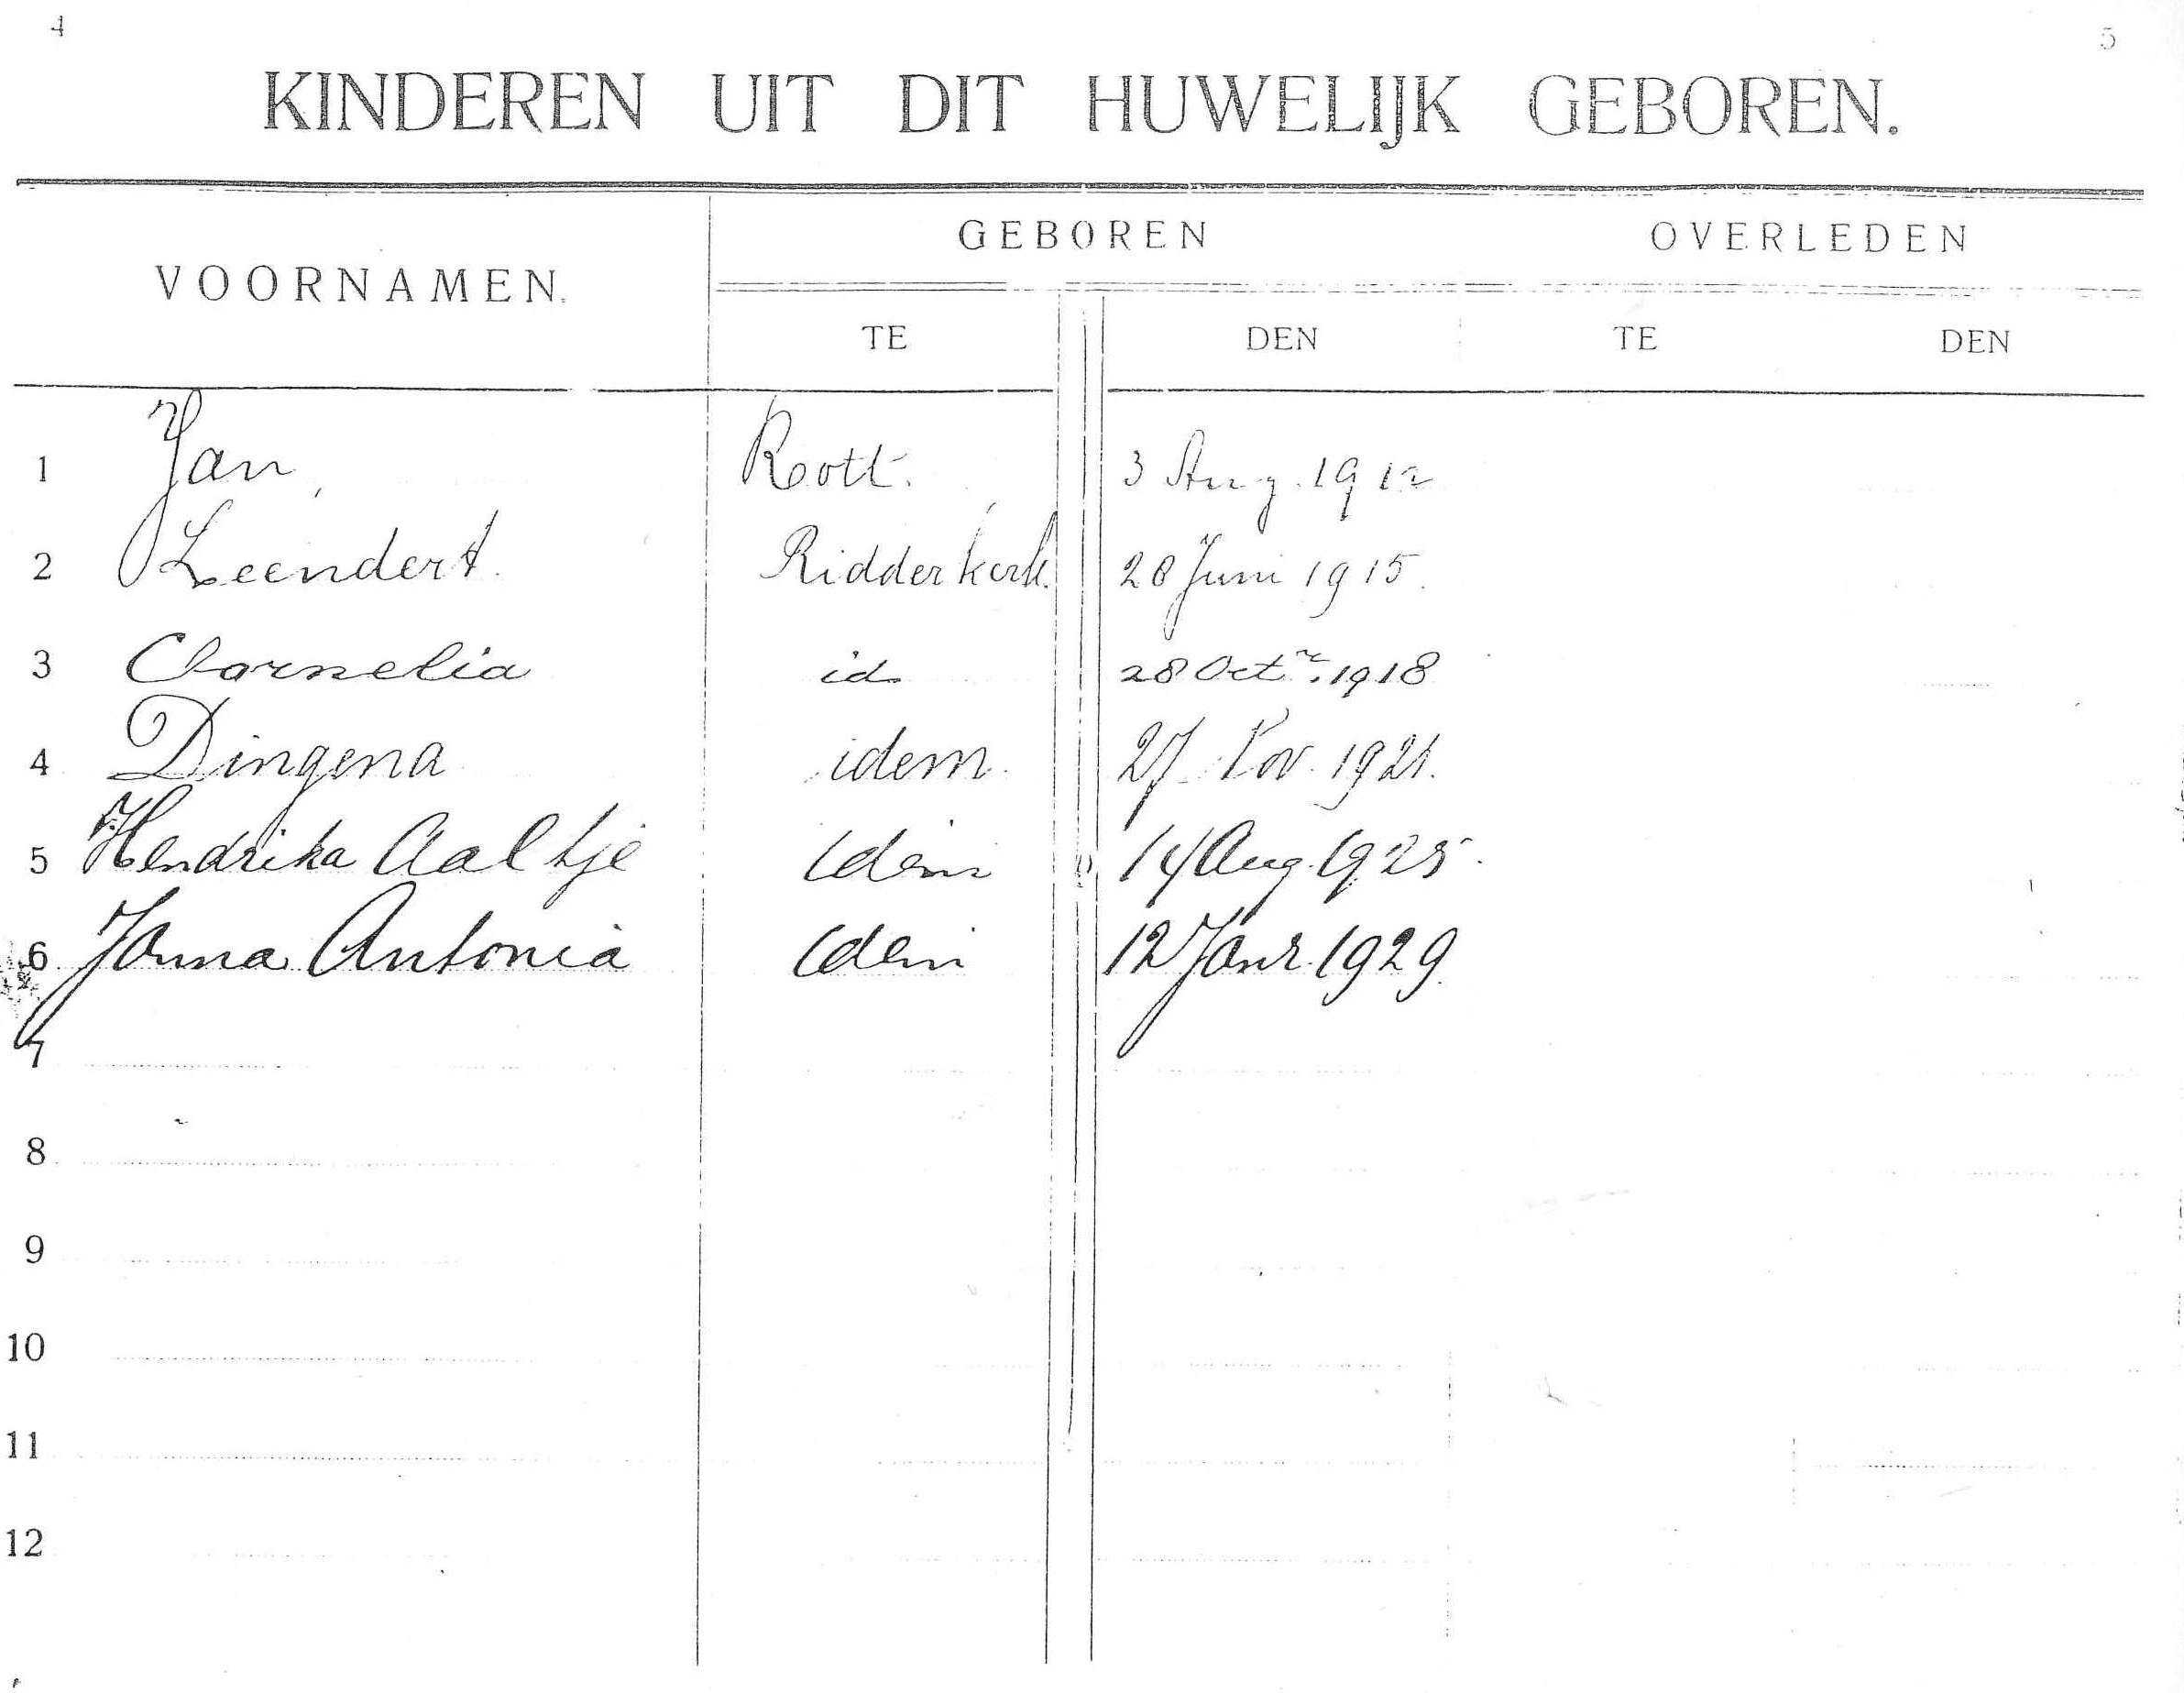 4 5
KINDEREN UIT DIT HUWELIJK GEBOREN.
VOORNAMEN. GEBOREN OVERLEDEN
TE DEN TE DEN
1 Jan Rott. 3 Aug. 1912
2 Leendert. Ridderkerk. 28 Juni 1915.
3 Cornelia id 28 Oct r. 1918
4 Dingena idem 27 Nov. 1921.
5 Hendrika Aaltje Idem 14 Aug. 1925.
6 Janna Antonia Idem 12 Janr. 1929.
7
8
9
10
11
12